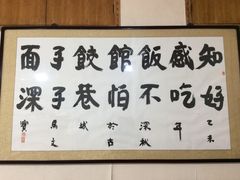 知感飯館餃子面
好吃不怕巷子深
乙未年深秋於古城馬文寶